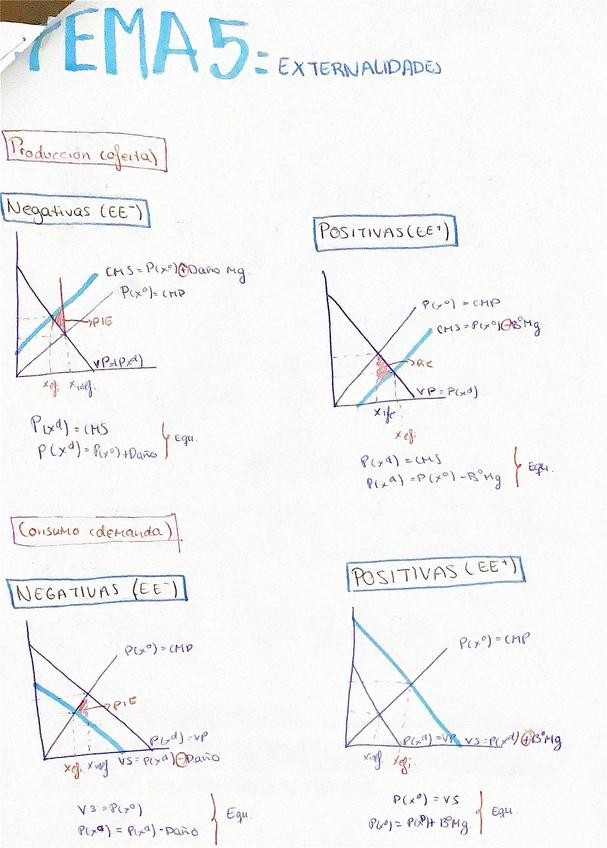 TEMA 5: EXTERNALIDADES
Producción (oferta)
Negativas (EE⁻)
CMS = P(x⁰) + Daño Mg.
P(x⁰) = CMP
PIE
VP = P(xᵈ)
xef. xinef.
P(xᵈ) = CMS
P(xᵈ) = P(x⁰) + Daño
Equ.
POSITIVAS (EE⁺)
P(x⁰) = CMP
CMS = P(x⁰) - BºMg
PIE
VP = P(xᵈ)
xef.
P(xᵈ) = CMS
P(xᵈ) = P(x⁰) - BºMg
Equ.
Consumo (demanda)
NEGATIVAS (EE⁻)
P(x⁰) = CMP
PIE
P(xᵈ) = VP
xef. xinef
VS = P(xᵈ) - Daño
VS = P(x⁰)
P(x⁰) = P(xᵈ) - Daño
Equ.
POSITIVAS (EE⁺)
P(x⁰) = CMP
P(xᵈ) = VP VS = P(xᵈ) + BºMg
xinef xef.
P(x⁰) = VS
Equ.